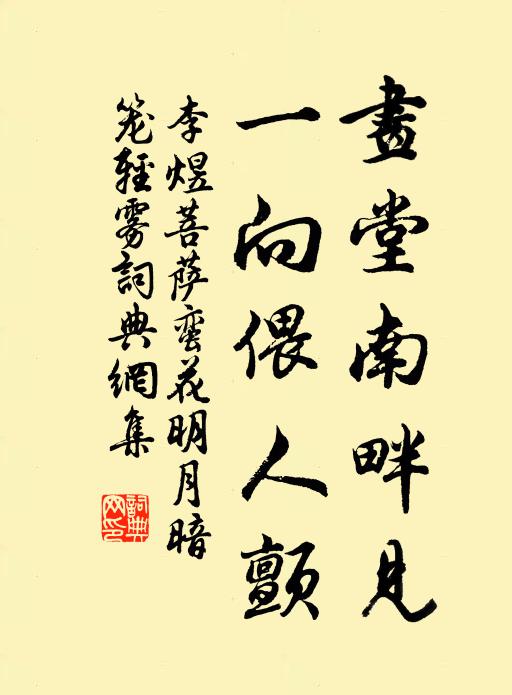 畫堂南畔見
一向偎人顫
李煜菩萨蛮花明月暗
笼輕雾詞典網集
詞典網印